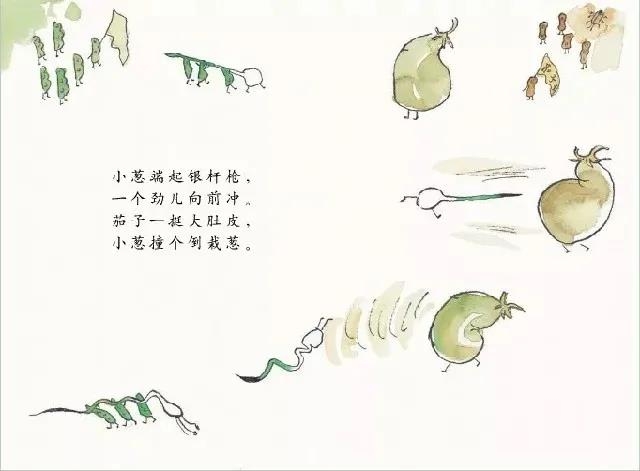 小葱端起银杆枪，
一个劲儿向前冲。
茄子一挺大肚皮，
小葱撞个倒栽葱。